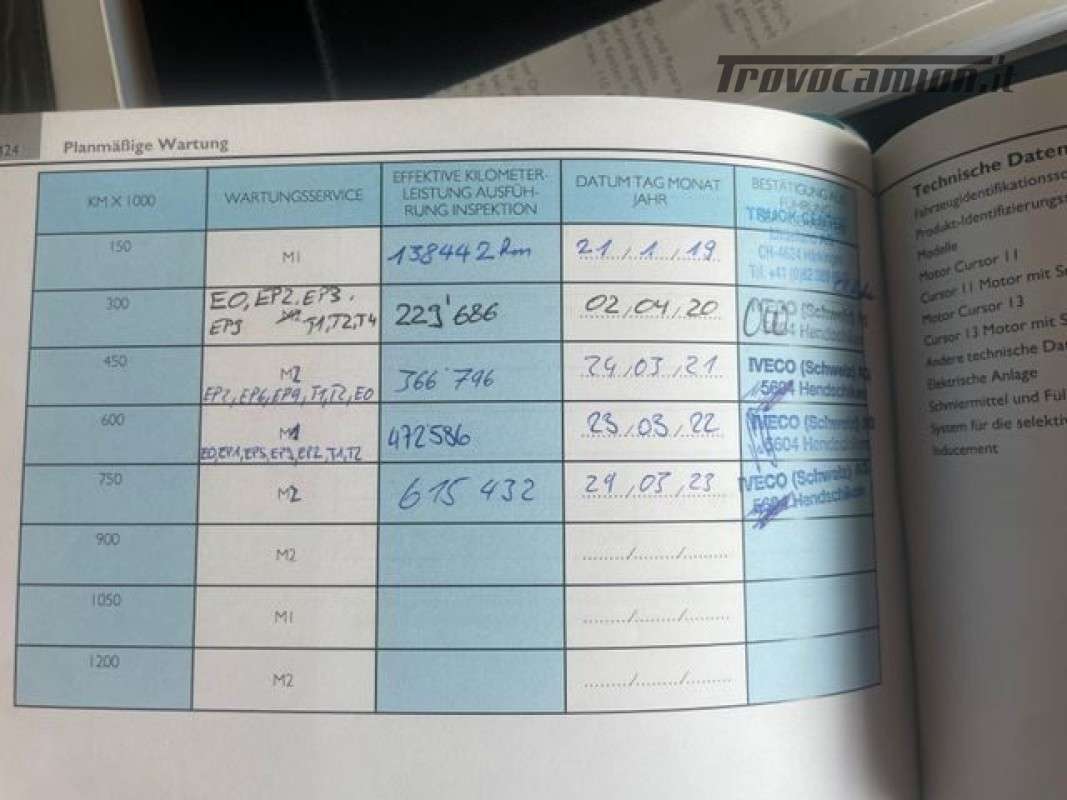 Trovocamion.it
124 Planmäßige Wartung
KM X 1000
WARTUNGSSERVICE
EFFEKTIVE KILOMETER-
LEISTUNG AUSFÜH-
RUNG INSPEKTION
DATUM TAG MONAT
JAHR
BESTÄTIGUNG
TRUCK CENTER
150
M1
138442 km
21/1/19
CH-4624 Härkingen
Tel. +41 (0)62
300
EO, EP2, EP3.
EP9
T1,T2,T4
223'686
02/04/20
IVECO (Schweiz) AG
5604 Hendschiken
450
M2
EP2,EP6,EP9,T1,T2,EO
366'796
24/03/21
IVECO (Schweiz) AG
5604 Hendschiken
600
M1
EO,EP1,EP5,EP3,EP2,T1,T2
472586
23/03/22
IVECO (Schweiz) AG
5604 Hendschiken
750
M2
615 432
29/03/23
IVECO (Schweiz) AG
5604 Hendschiken
900
M2
....../....../......
1050
M1
....../....../......
1200
M2
....../....../......
Technische Daten
Fahrzeugidentifikationssc
Produkt-Identifizierungss
Modelle
Motor Cursor 11
Cursor 11 Motor mit Se
Motor Cursor 13
Cursor 13 Motor mit S
Andere technische Da
Elektrische Anlage
Schmiermittel und Fül
System für die selektiv
Inducement